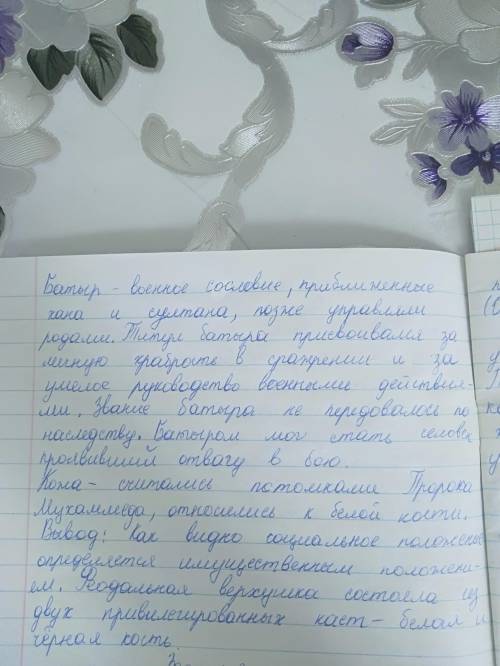 Батыр - военное сословие, приближенные
хана и султана, позже управляли
родами. Титул батыра присвоивался за
личную храбрость в сражении и за
умелое руководство военными действия-
ми. Звание батыра не передовалось по
наследству. Батыром мог стать человек
проявивший отвагу в бою.
Кожа - считались потомками Пророка
Мухаммеда, относились к белой кости.
Вывод: Как видно социальное положение
определяется имущественным положени-
ем. Феодальная верхушка состояла из
двух привилегированных каст - белая и
чёрная кость.